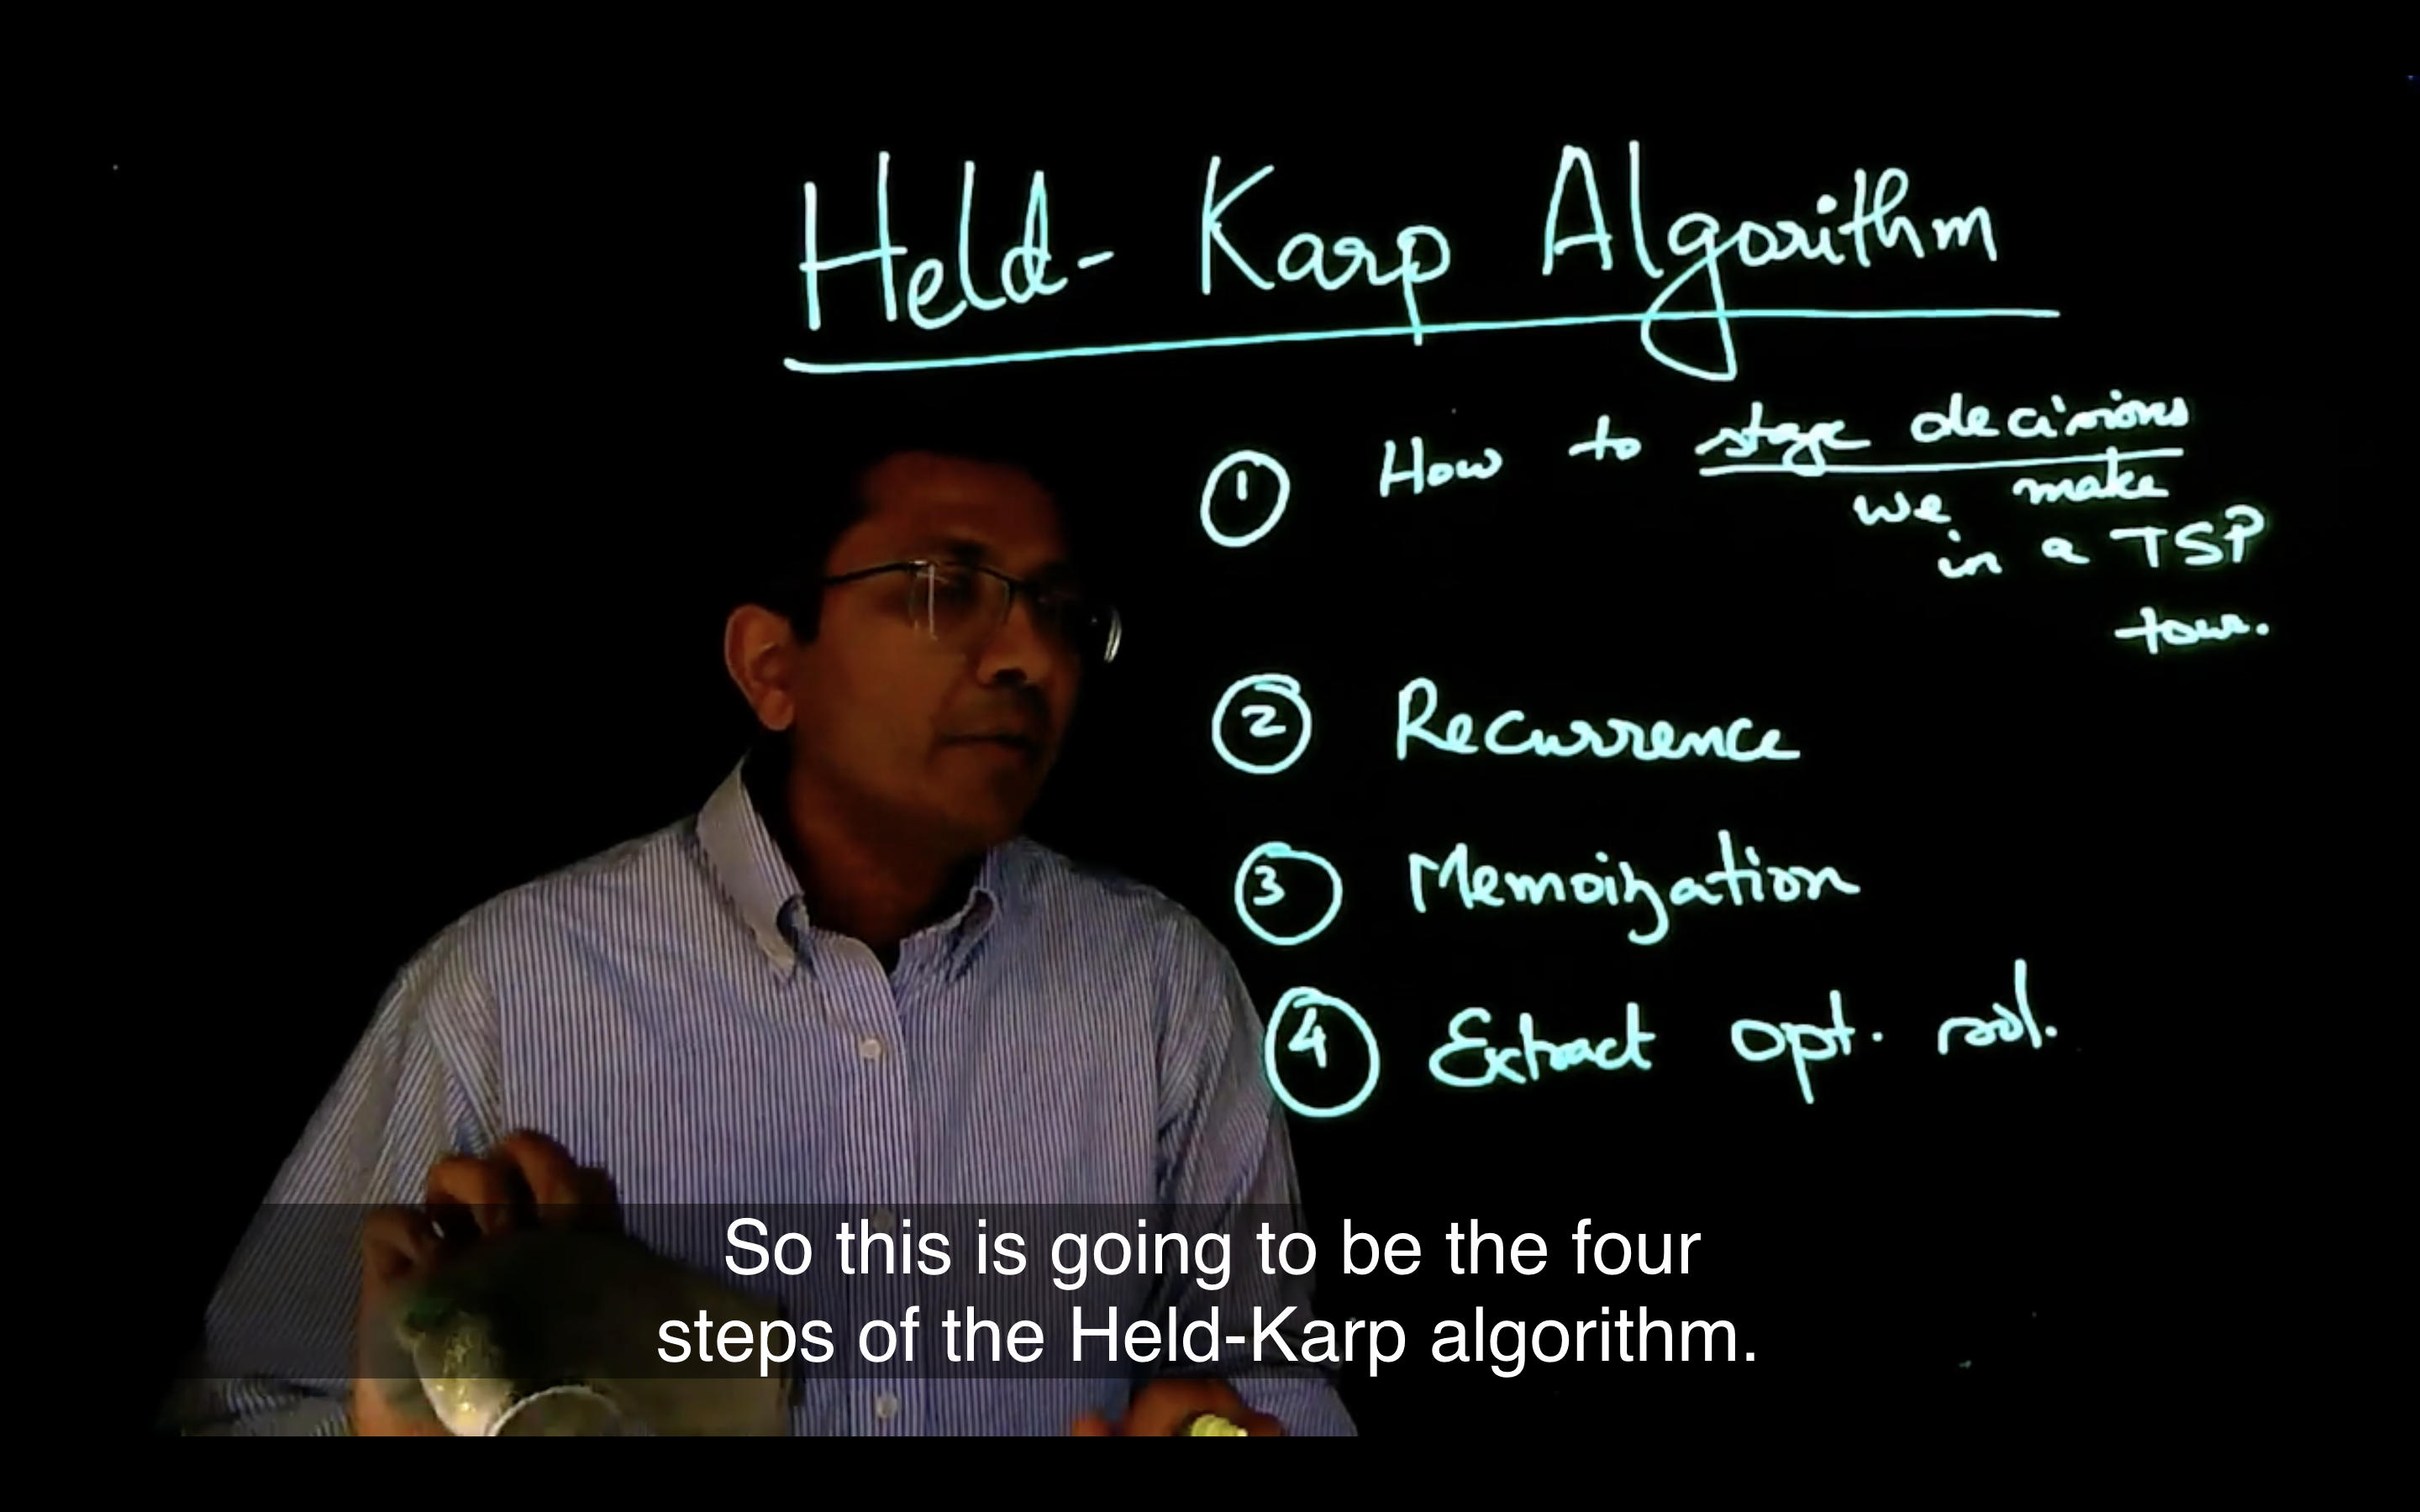 Held- Karp Algorithm
1 How to stage decisions
we make
in a TSP
tour.
2 Recurrence
3 Memoization
4 Extract opt. sol.
So this is going to be the four
steps of the Held-Karp algorithm.